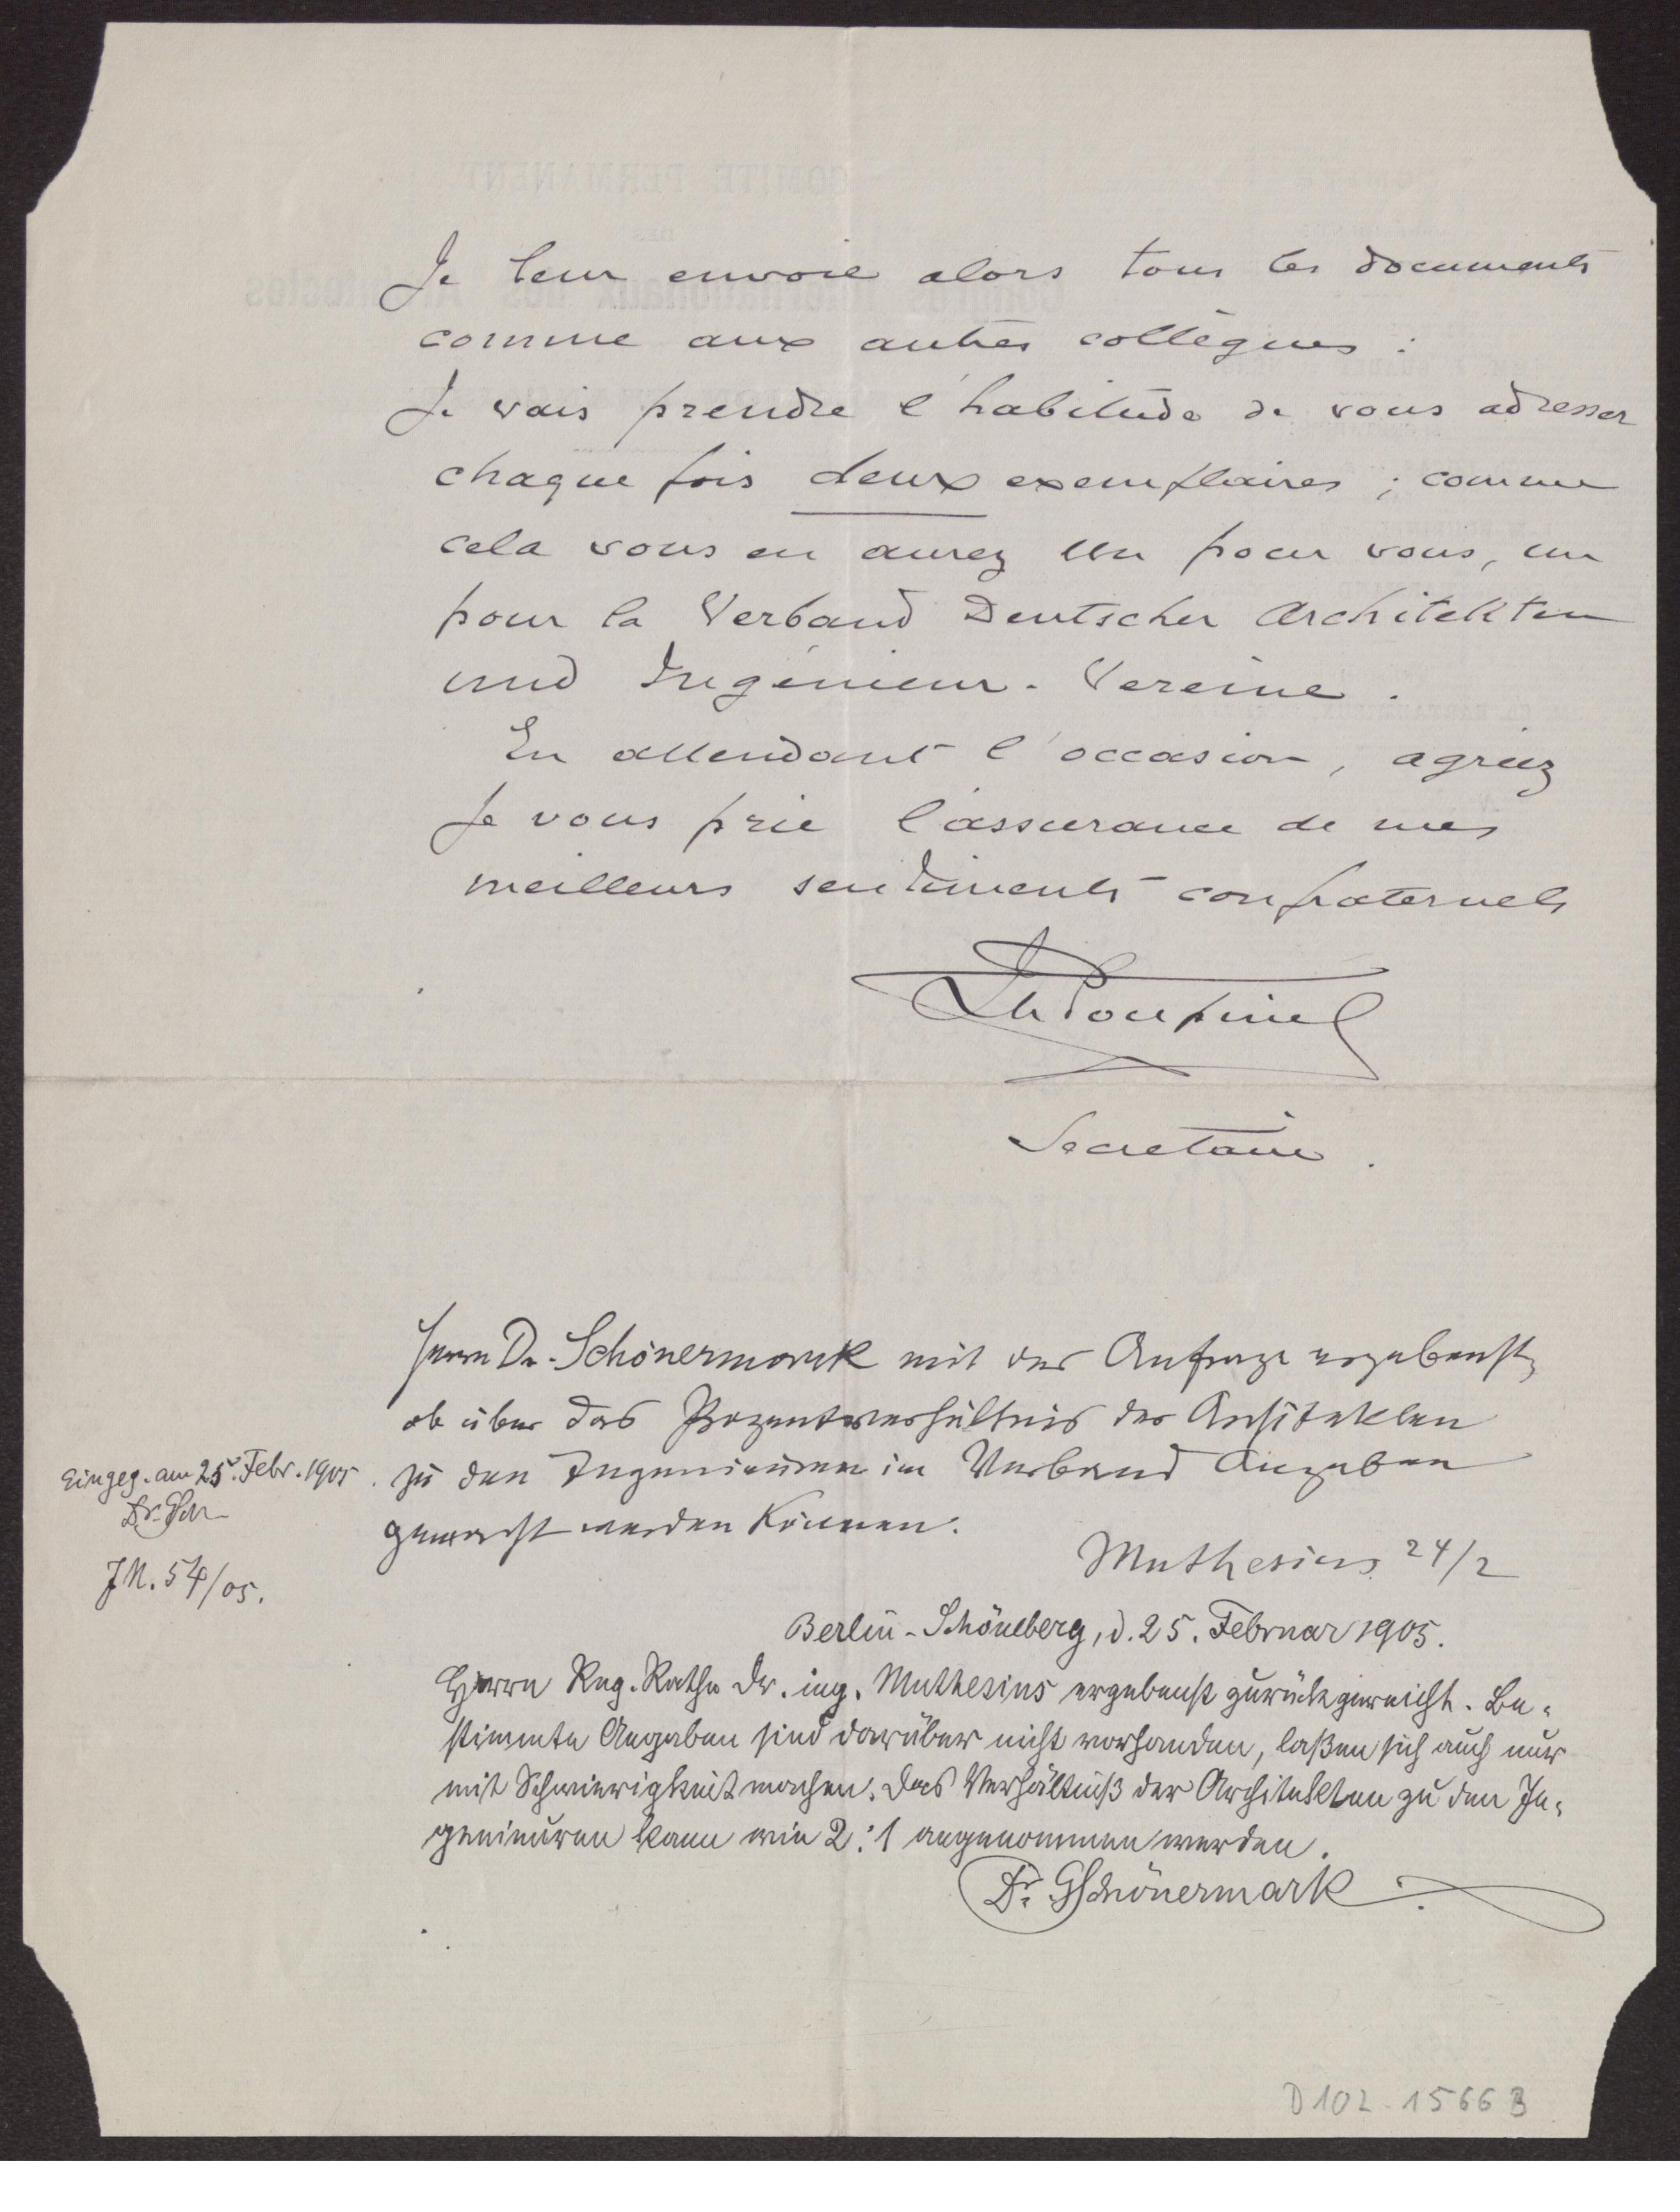 Je leur envoie alors tous les documents
comme aux autres collègues :
Je vais prendre l'habitude de vous adresser
chaque fois deux exemplaires ; comme
cela vous en aurez un pour vous, un
pour la Verband Deutscher Architekten
und Ingénieur-Vereine.
En attendant l'occasion, agréez
Je vous prie l'assurance de mes
meilleurs sentiments confraternels
Poupinel
Secrétaire.
Herrn Dr. Schönermark mit der Anfrage ergebenst,
ob über das Prozentverhältnis der Architekten
zu den Ingenieuren im Verband Angaben
gemacht werden können.
Muthesius 24/2
Eingeg. am 25. Febr. 1905
Dr. GSch
JN. 54/05.
Berlin-Schöneberg, d. 25. Februar 1905.
Herrn Reg. Rathe Dr. ing. Muthesius ergebenst zurückgereicht. Be-
stimmte Angaben sind darüber nicht vorhanden, laßen sich auch nur
mit Schwierigkeit machen. Das Verhältniß der Architekten zu den In-
genieuren kann wie 2:1 angenommen werden.
Dr. GSchönermark
D 102-1566 B